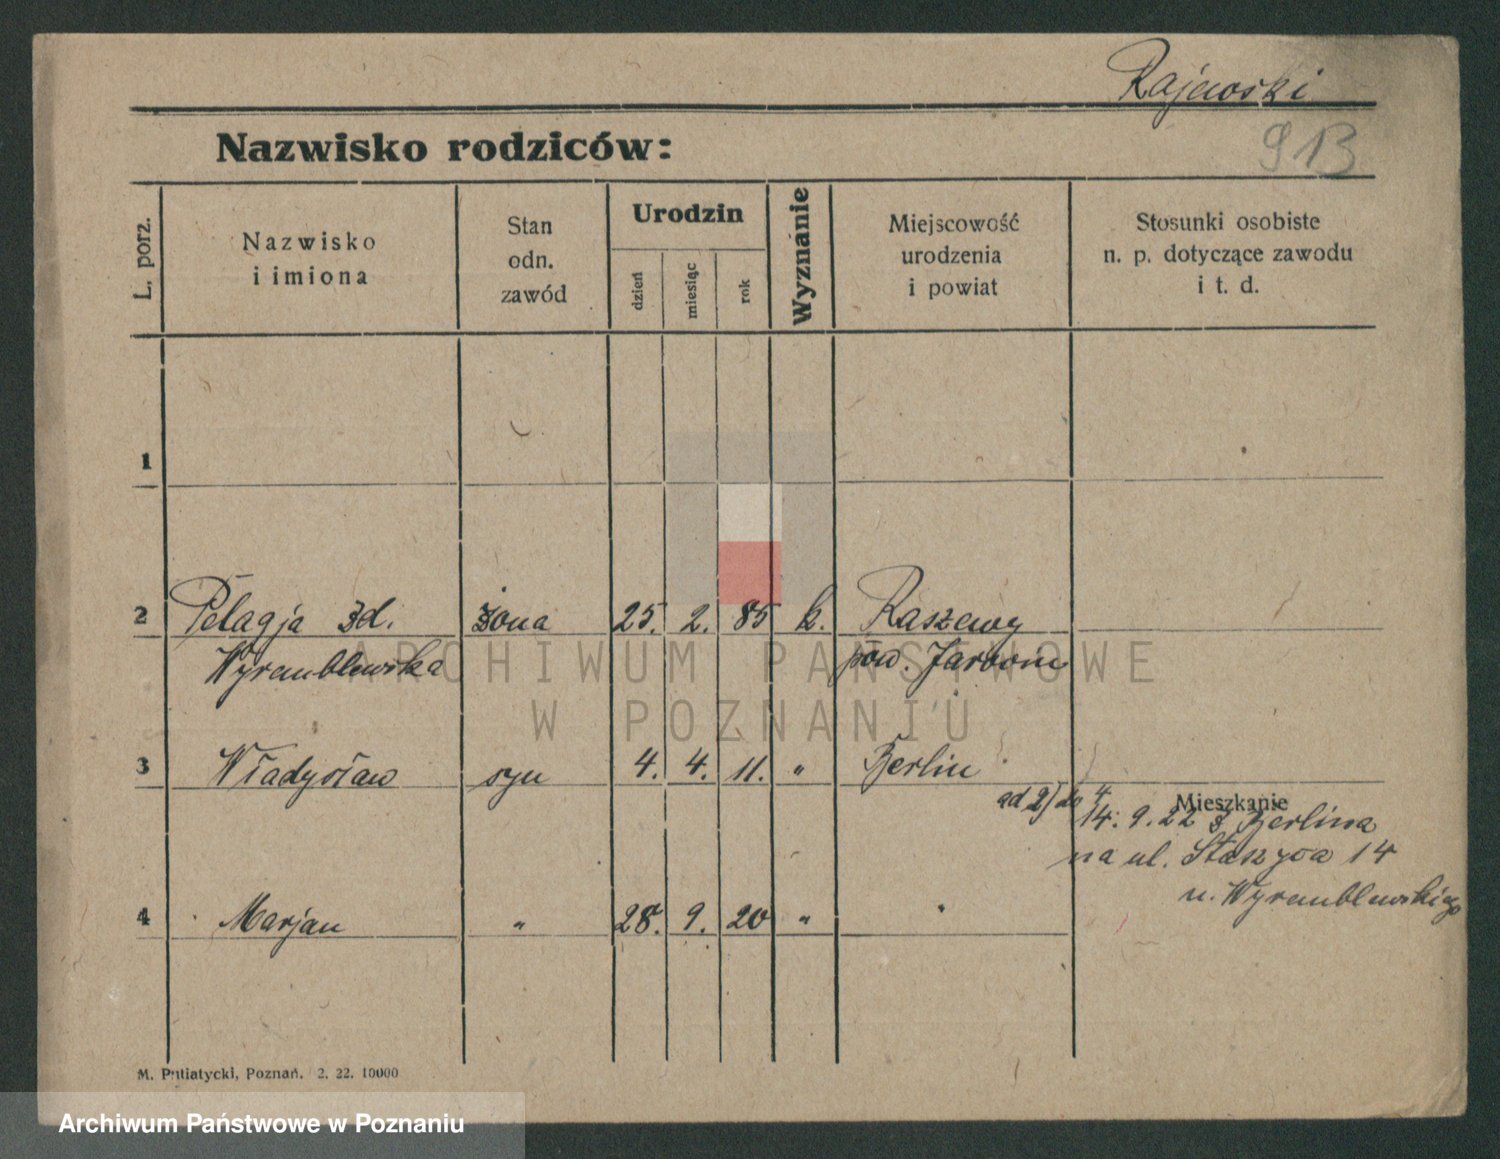 Rajewski
913
Nazwisko rodziców:
L. porz.
Nazwisko
i imiona
Stan
odn.
zawód
Urodzin
dzień
miesiąc
rok
Wyznanie
Miejscowość
urodzenia
i powiat
Stosunki osobiste
n. p. dotyczące zawodu
i t. d.
1
2 Pelagja zd. żona 25. 2. 85 k. Raszewy
Wyremblewska pow. Jarocin
3 Władysław syn 4. 4. 11. " Berlin
ad 2) do 4
Mieszkanie
14. 9. 22 z Berlina
na ul. Staszyca 14
u. Wyremblewskiego
4 Marjan " 28. 9. 20 " "
M. Putiatycki, Poznań. 2. 22. 10000
ARCHIWUM PAŃSTWOWE
W POZNANIU
Archiwum Państwowe w Poznaniu